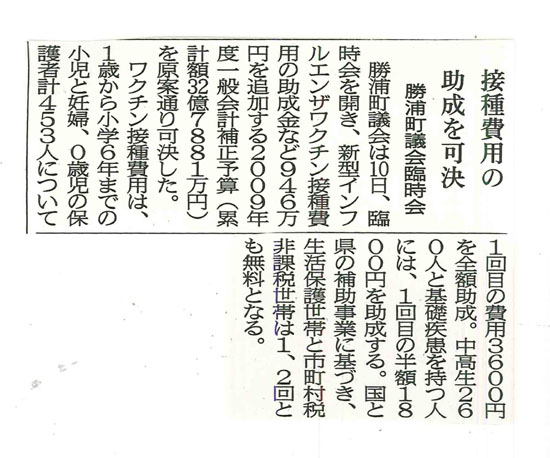 接種費用の
助成を可決
勝浦町議会臨時会
勝浦町議会は10日、臨
時会を開き、新型インフ
ルエンザワクチン接種費
用の助成金など946万
円を追加する2009年
度一般会計補正予算(累
計額32億7881万円)
を原案通り可決した。
ワクチン接種費用は、
1歳から小学6年までの
小児と妊婦、0歳児の保
護者計453人について
1回目の費用3600円
を全額助成。中高生26
0人と基礎疾患を持つ人
には、1回目の半額18
00円を助成する。国と
県の補助事業に基づき、
生活保護世帯と市町村税
非課税世帯は1、2回と
も無料となる。